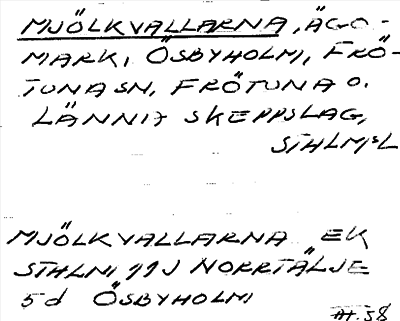 MJÖLKVALLARNA, ÄGO-
MARK, ÖSBYHOLM, FRÖ-
TUNA SN, FRÖTUNA O.
LÄNNA SKEPPSLAG,
STHLMSL
MJÖLKVALLARNA EK
STHLM 11J NORRTÄLJE
5d ÖSBYHOLM